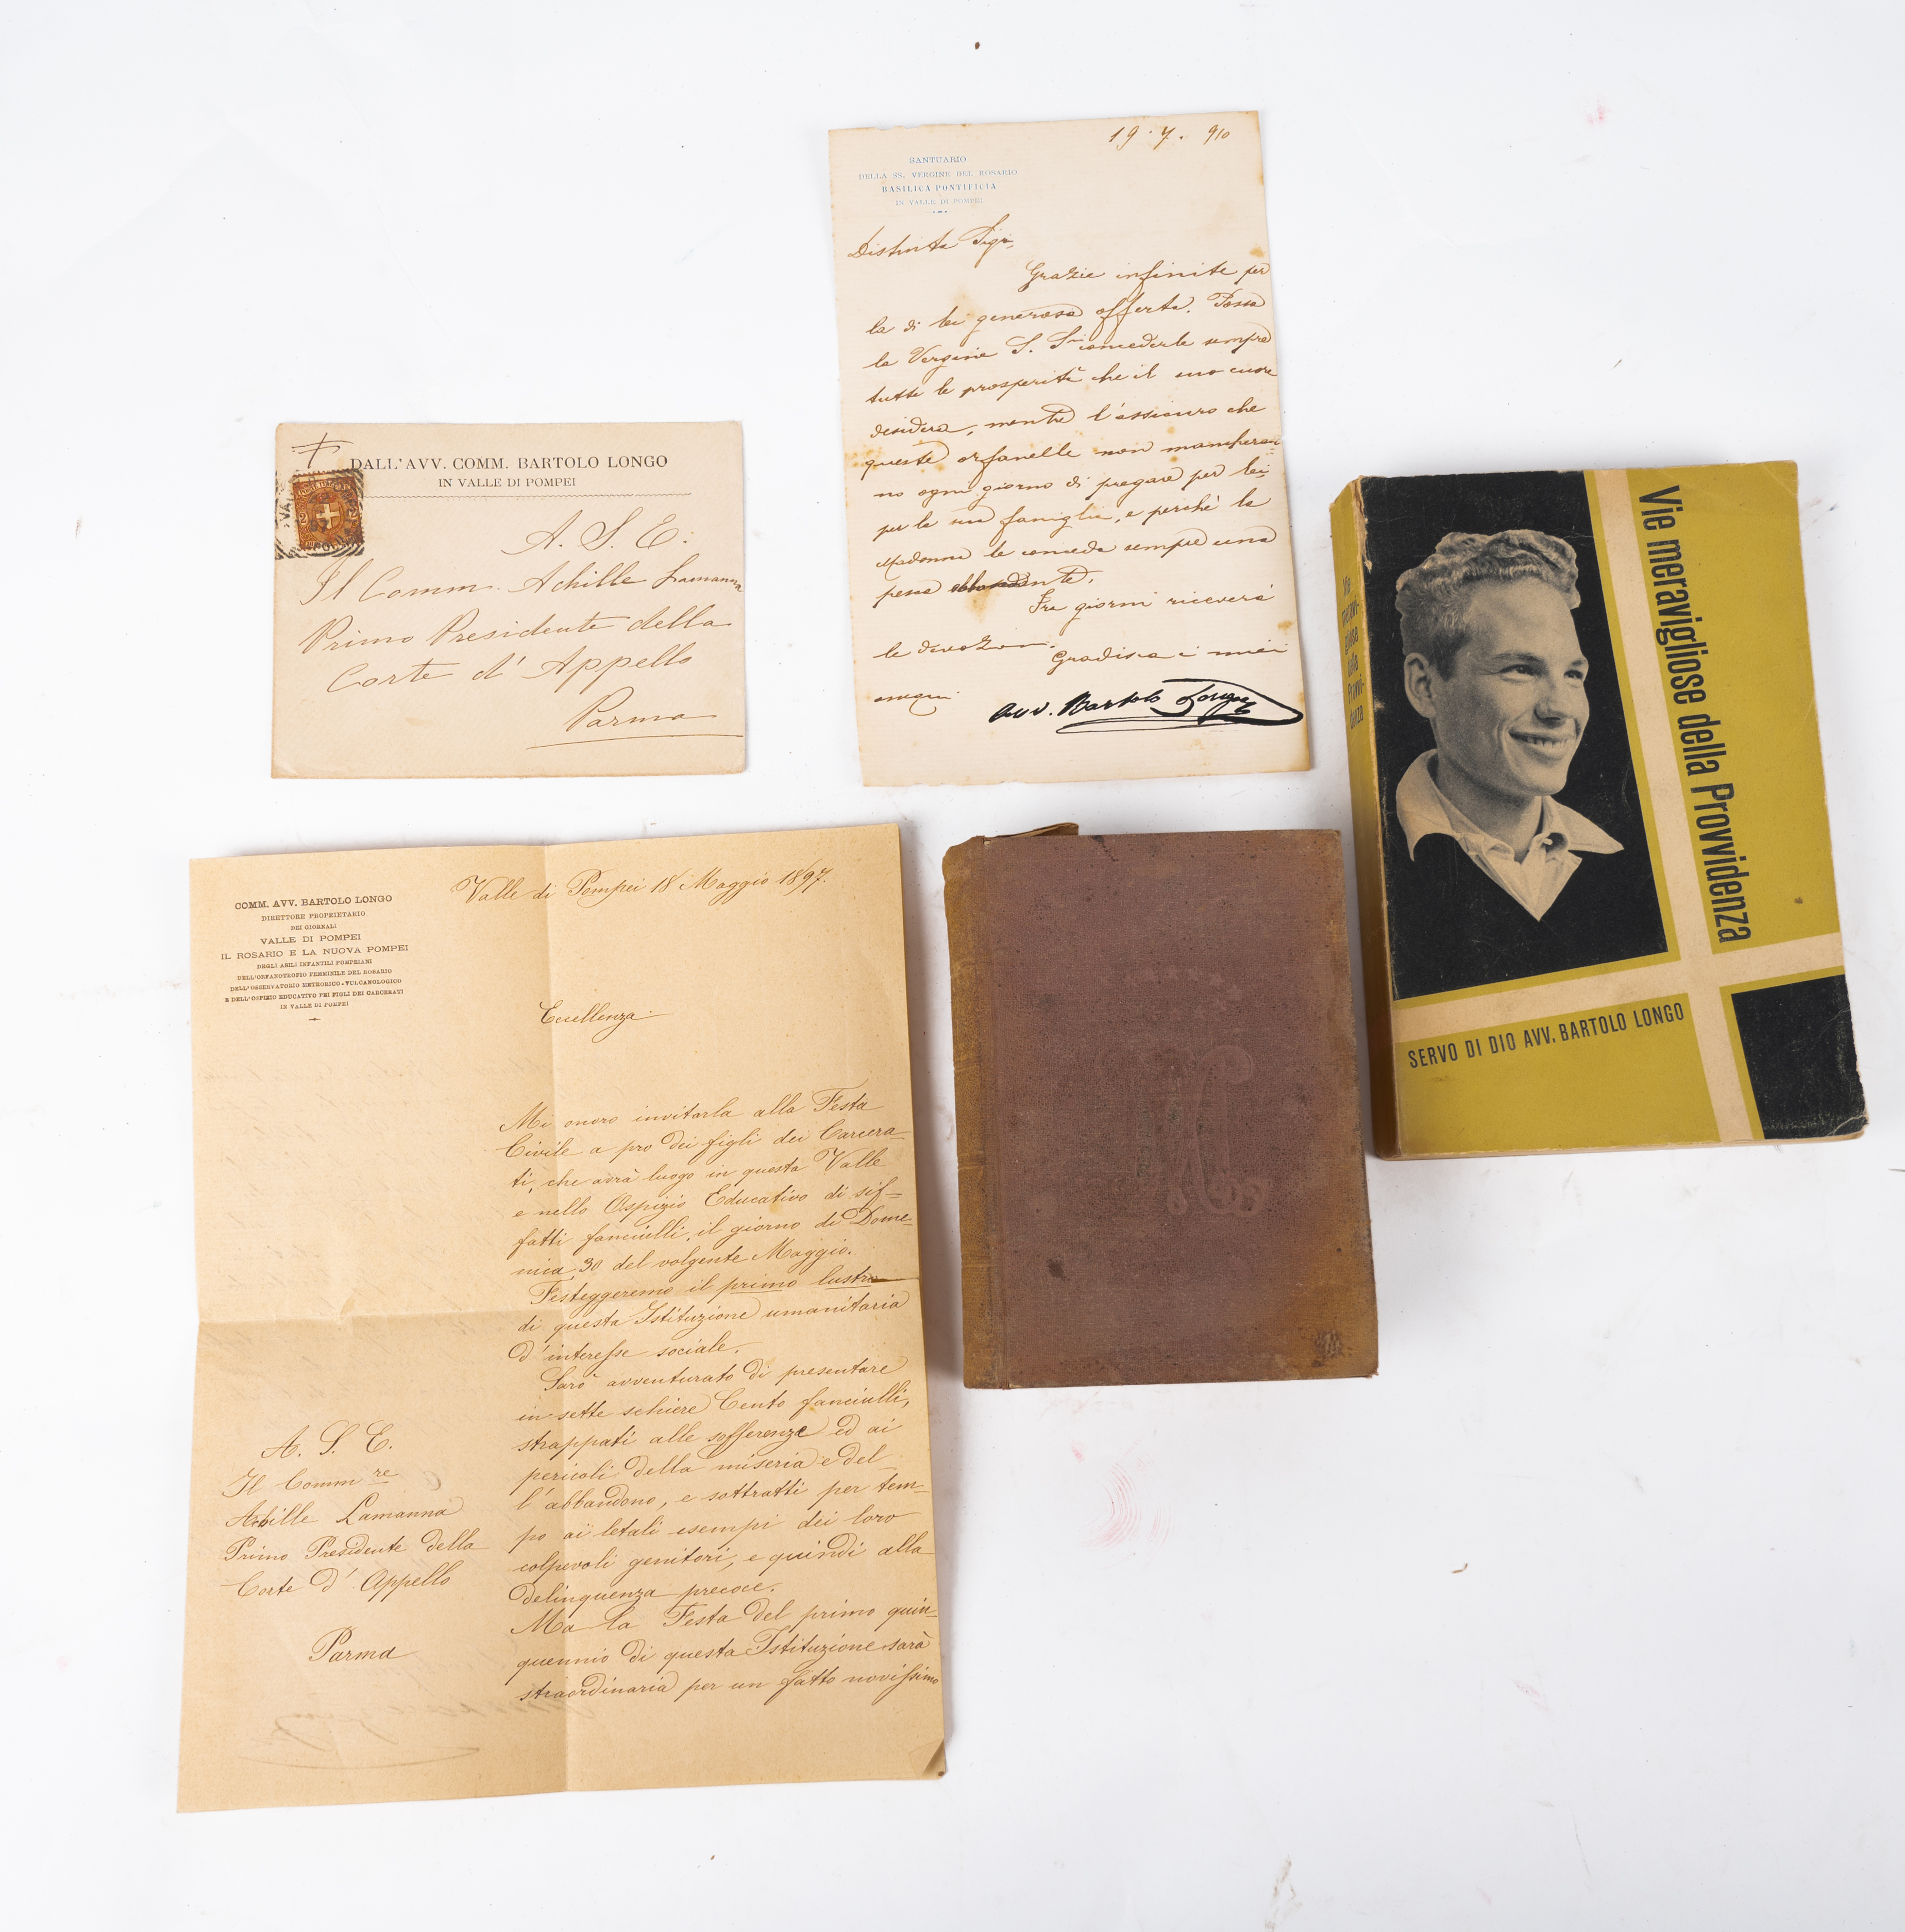 DALL'AVV. COMM. BARTOLO LONGO
IN VALLE DI POMPEI
A. S. E.
Il Comm. Achille Lamanna
Primo Presidente della
Corte d'Appello
Parma
19. 7. 910
SANTUARIO
DELLA SS. VERGINE DEL ROSARIO
BASILICA PONTIFICIA
IN VALLE DI POMPEI
Distinta Sigra,
Grazie infinite per
la di lei generosa offerta. Possa
la Vergine S. Sma concederle sempre
tutte le prosperità che il suo cuore
desidera, mentre l'assicuro che
queste orfanelle non mancheran=
no ogni giorno di pregare per lei
per la sua famiglia, e perchè la
Madonna le conceda sempre una
pesca abbondante.
Fra giorni riceverà
le devozioni.
Gradisca i miei
ossequi
Avv. Bartolo Longo
Vie meravigliose della Provvidenza
Vie
meravi-
gliose
della
Provvi-
denza
SERVO DI DIO AVV. BARTOLO LONGO
COMM. AVV. BARTOLO LONGO
DIRETTORE PROPRIETARIO
DEI GIORNALI
VALLE DI POMPEI
IL ROSARIO E LA NUOVA POMPEI
DEGLI ASILI INFANTILI POMPEIANI
DELL'ORFANOTROFIO FEMMINILE DEL ROSARIO
DELL'OSSERVATORIO METEORICO-VULCANOLOGICO
E DELL'OSPIZIO EDUCATIVO PEI FIGLI DEI CARCERATI
IN VALLE DI POMPEI
Valle di Pompei 18 Maggio 1897.
Eccellenza
Mi onoro invitarla alla Festa
Civile a pro dei figli dei Carcera-
ti, che avrà luogo in questa Valle
e nello Ospizio Educativo di sif=
fatti fanciulli, il giorno di Dome-
nica 30 del volgente Maggio.
Festeggeremo il primo lustro
di questa Istituzione umanitaria
d'interesse sociale.
Sarò avventurato di presentare
in sette schiere Cento fanciulli,
strappati alle sofferenze ed ai
pericoli della miseria e del-
l'abbandono, e sottratti per tem-
po ai letali esempi dei loro
colpevoli genitori, e quindi alla
delinquenza precoce.
Ma la Festa del primo quin-
quennio di questa Istituzione sarà
straordinaria per un fatto novissimo
A. S. E.
Il Comm re
Achille Lamanna
Primo Presidente della
Corte d'Appello
Parma